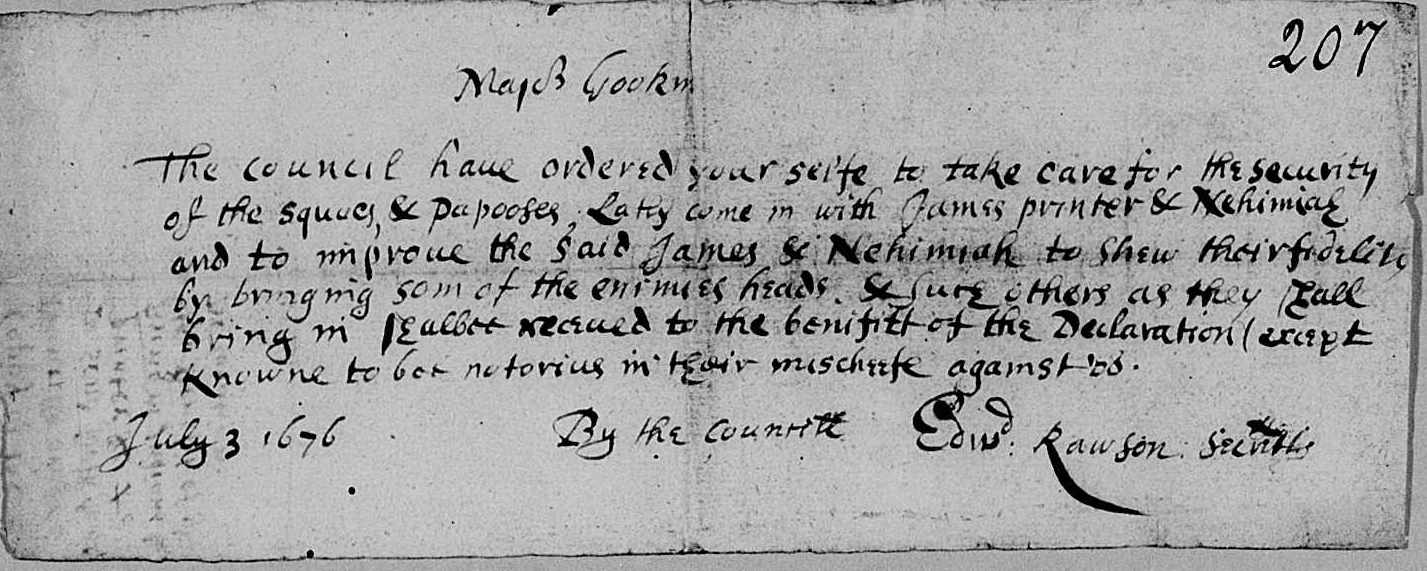 207
Majo^r Gookin
The council have ordered your selfe to take care for the security
of the squaes, & papooses, Lately come in with James printer & Nehimiah
and to improve the said James & Nehimiah to shew their fidelity
by bringing som of the enimies heads. & such others as they shall
bring in shalbee receued to the benifitt of the Declaration (except
Knowne to bee notorius in their mischeefe against vs.
July 3 1676 By the councill Edw^d: Rawson